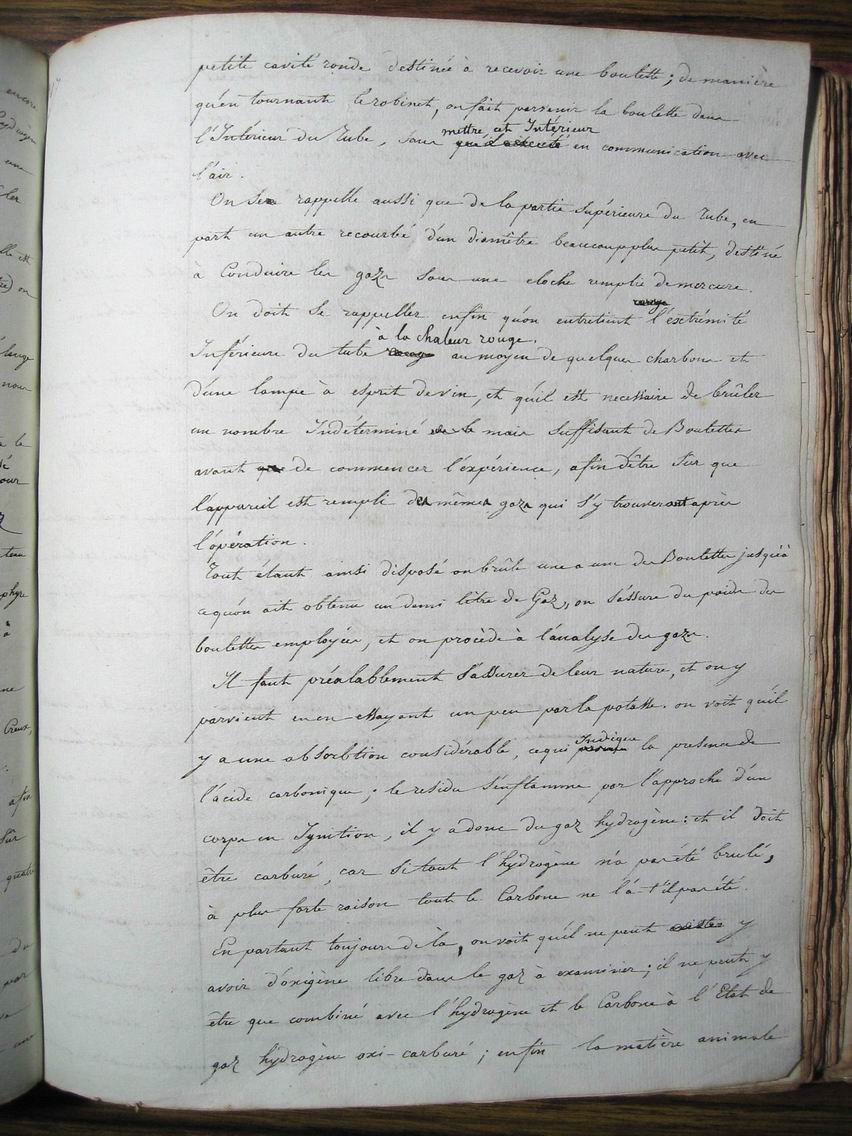 petite cavité ronde destinée à recevoir une boulette ; de manière
qu'en tournant le robinet, on fait parvenir la boulette dans
mettre, cet Intérieur
l'Intérieur du Tube, sans en communication avec
l'air.
On se rappelle aussi que de la partie supérieure du Tube, en
part un autre recourbé d'un diamètre beaucoup plus petit, destiné
à Conduire les gazs sous une cloche remplie de mercure.
rouge
On doit se rappeller enfin qu'on entretient l'extrémité
à la chaleur rouge.
Inférieure du tube rouge au moyen de quelques charbons et
d'une lampe à esprit de vin, et qu'il est necessaire de brûler
un nombre Indéterminé mais suffisant de Boulettes
avant que de commencer l'expérience, afin d'être sûr que
l'appareil est rempli des mêmes gazs qui s'y trouveront après
l'opération.
Tout étant ainsi disposé on brûle une a une des Boulettes jusqu'à
cequ'on ait obtenu un demi litre de Gaz, on s'assure du poids des
boulettes employées, et on procède à l'analyse des gazs.
Il faut préalablement s'assurer de leur nature, et on y
parvient en en essayant un peu par la potasse. on voit qu'il
Indique
y a une absorbtion considérable, cequi prouve la presence de
l'acide carbonique ; le residu s'enflamme par l'approche d'un
corps en Ignition, il y a donc du gaz hydrogène : et il doit
être carburé, car si tout l'hydrogène n'a pas été brulé,
à plus forte raison tout le Carbone ne l'à-t'il pas été.
En partant toujours de là, on voit qu'il ne peut exister y
avoir d'oxigène libre dans le gaz à examiner ; il ne peut y
être que combiné avec l'hydrogène et le Carbone à l'Etat de
gaz hydrogène oxi-carburé ; enfin la matière animale